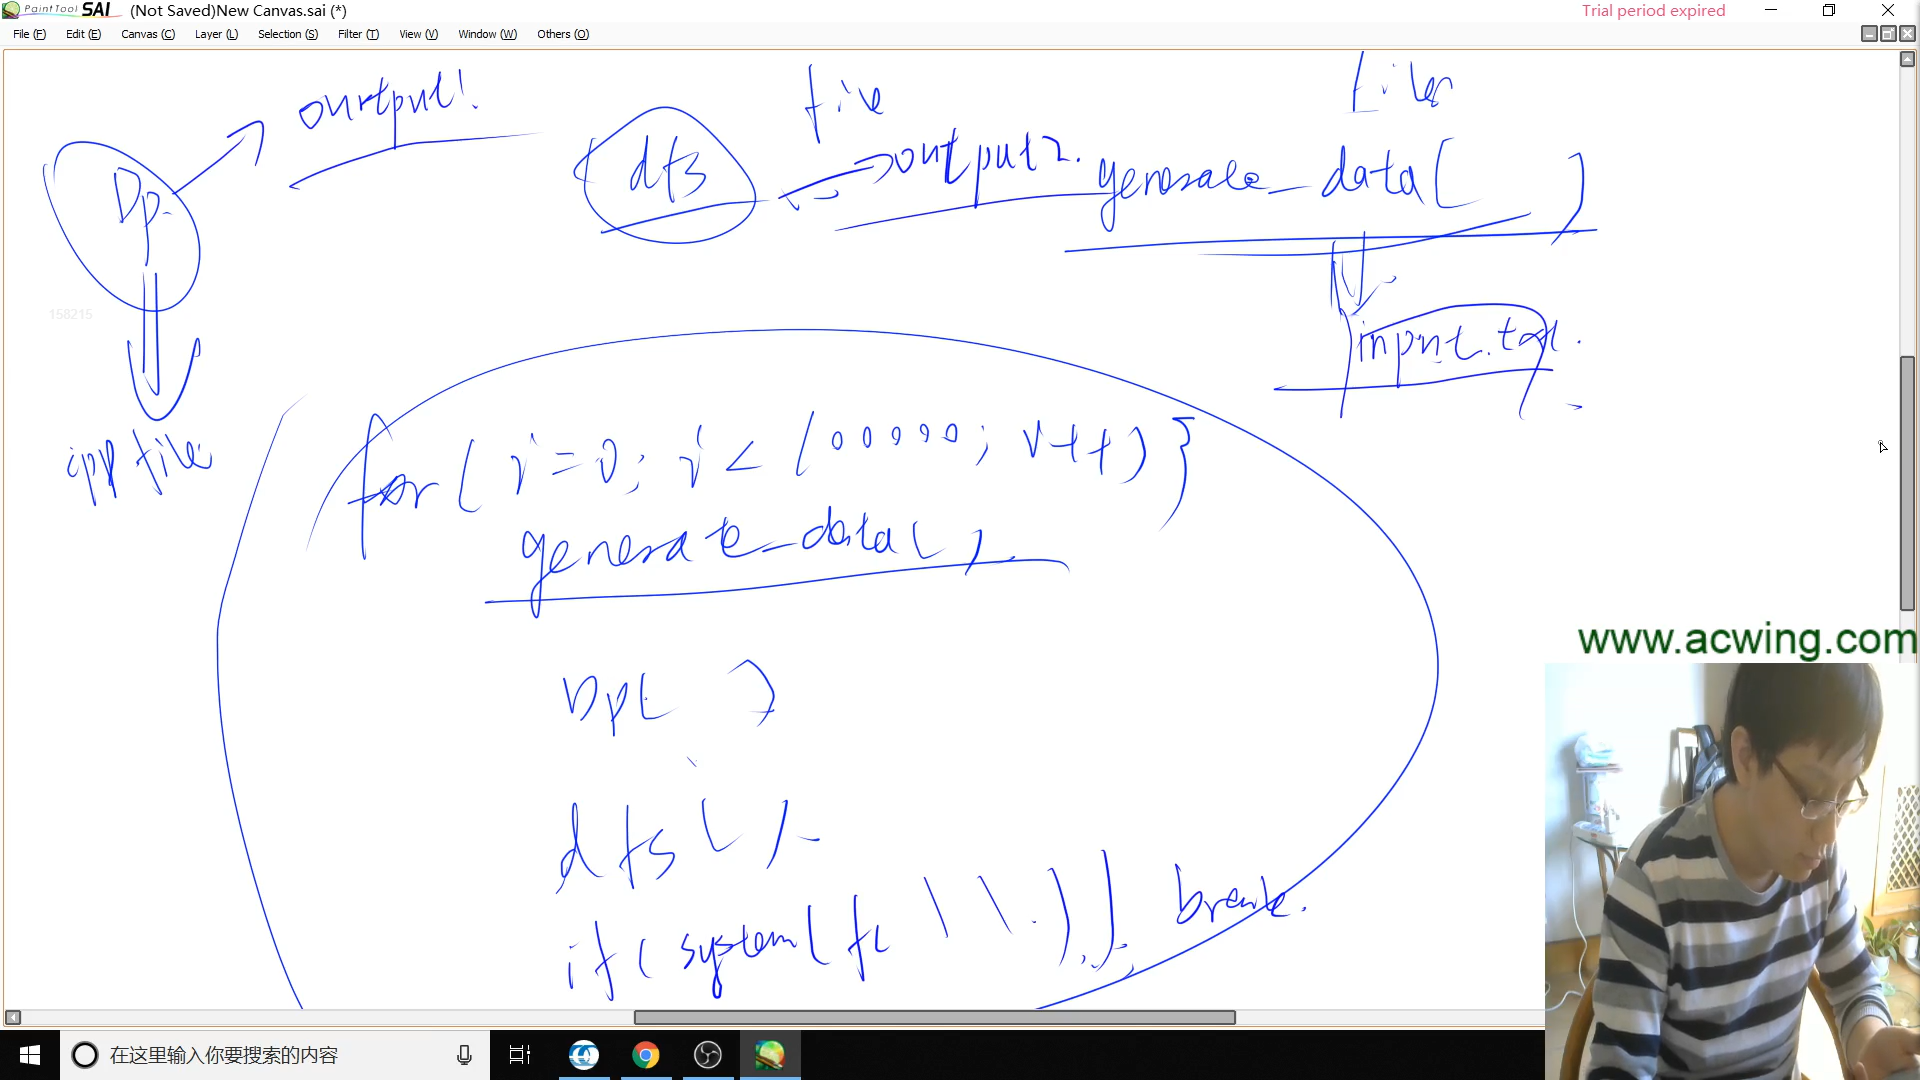 PaintTool SAI (Not Saved)New Canvas.sai (*)
Trial period expired
File (F) Edit (E) Canvas (C) Layer (L) Selection (S) Filter (T) View (V) Window (W) Others (O)
output1
file
Dp.
dfs
output2.
generate_data( )
158215
input.txt.
cpp file
for( i=0; i< 100000; i++){
generate_data( )
Dp( )
dfs( ).
if( system( fc \ \ . ) ) break.
www.acwing.com
在这里输入你要搜索的内容